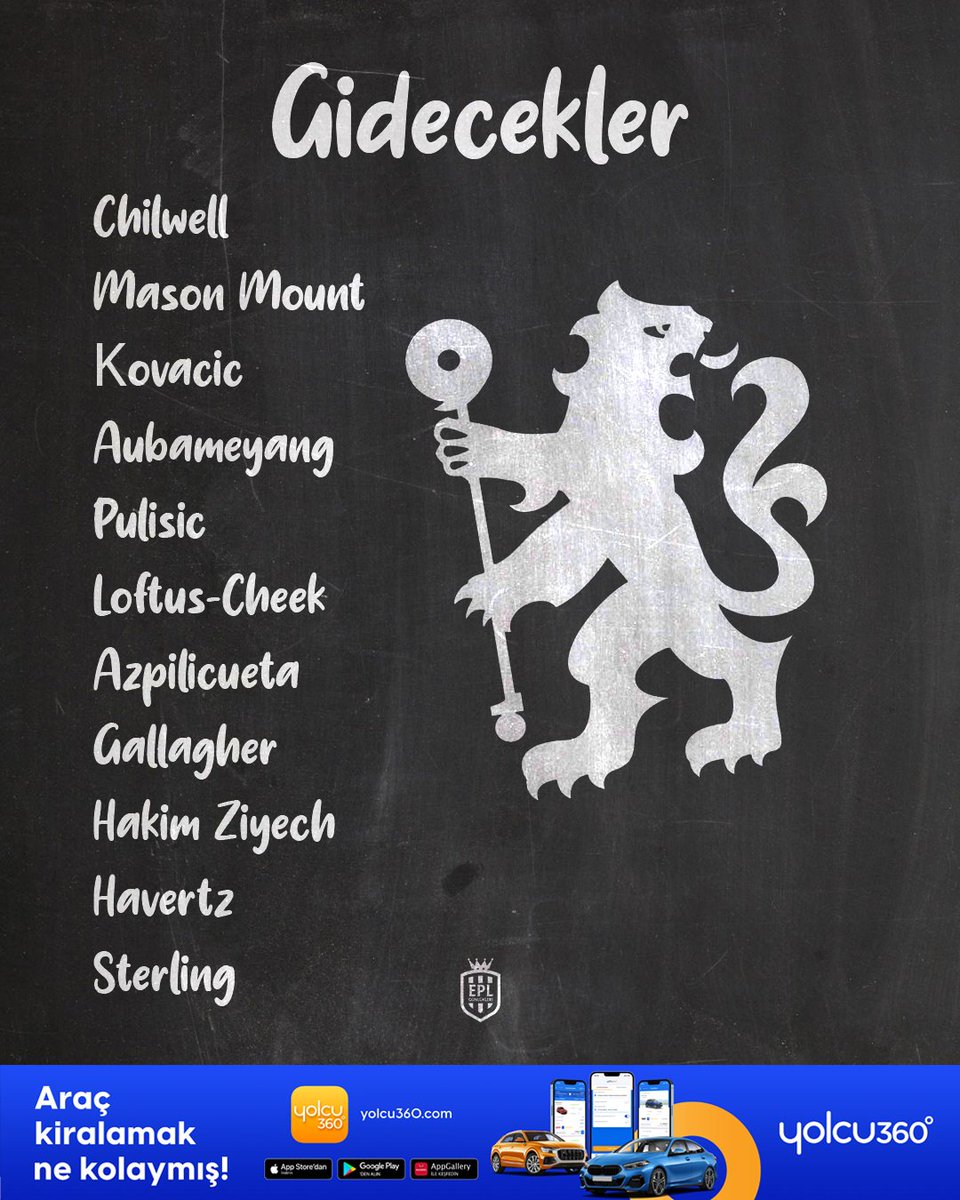 Gidecekler
Chilwell
Mason Mount
Kovacic
Aubameyang
Pulisic
Loftus-Cheek
Azpilicueta
Gallagher
Hakim Ziyech
Havertz
Sterling
EPL
GÜNLÜKLERİ
Araç
kiralamak
ne kolaymış!
yolcu
360°
yolcu360.com
App Store'dan
Google Play
AppGallery
yolcu360°